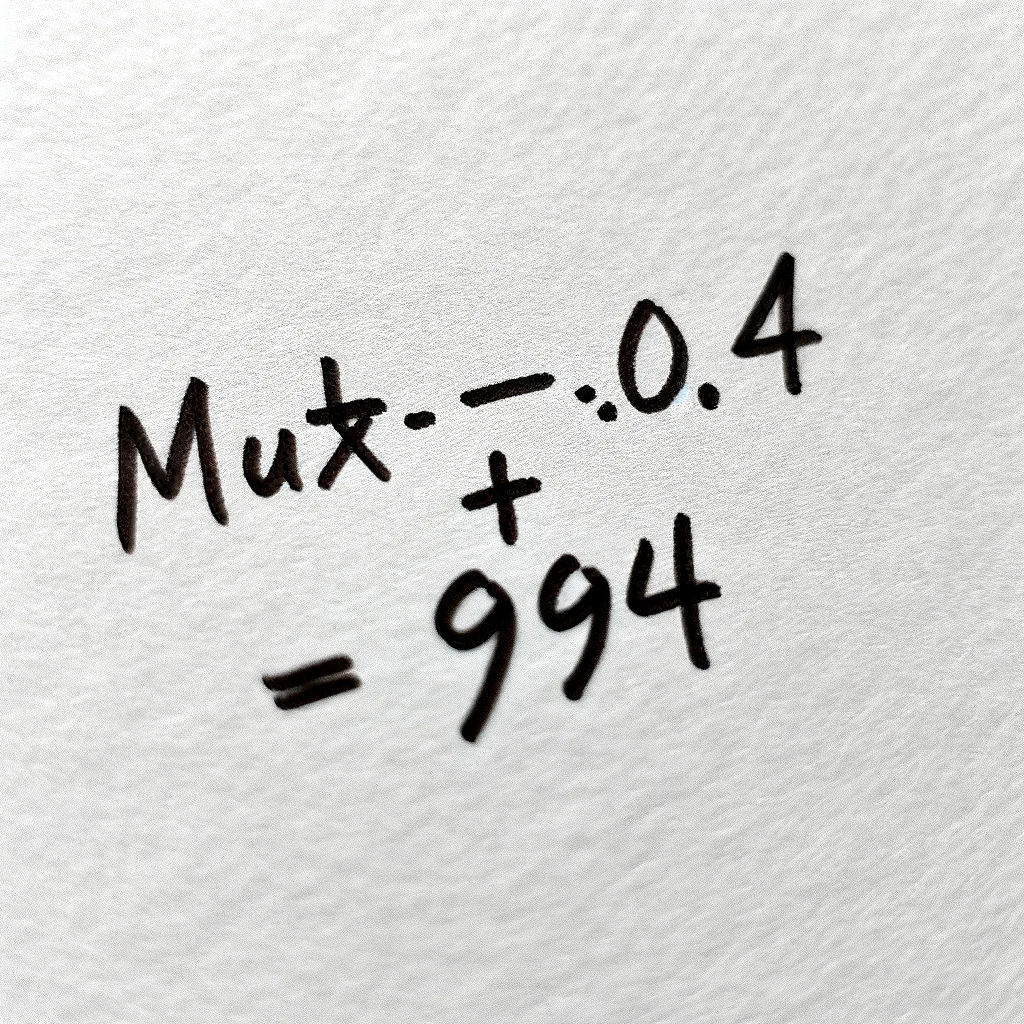 Mux. - :0.4
+
= 994